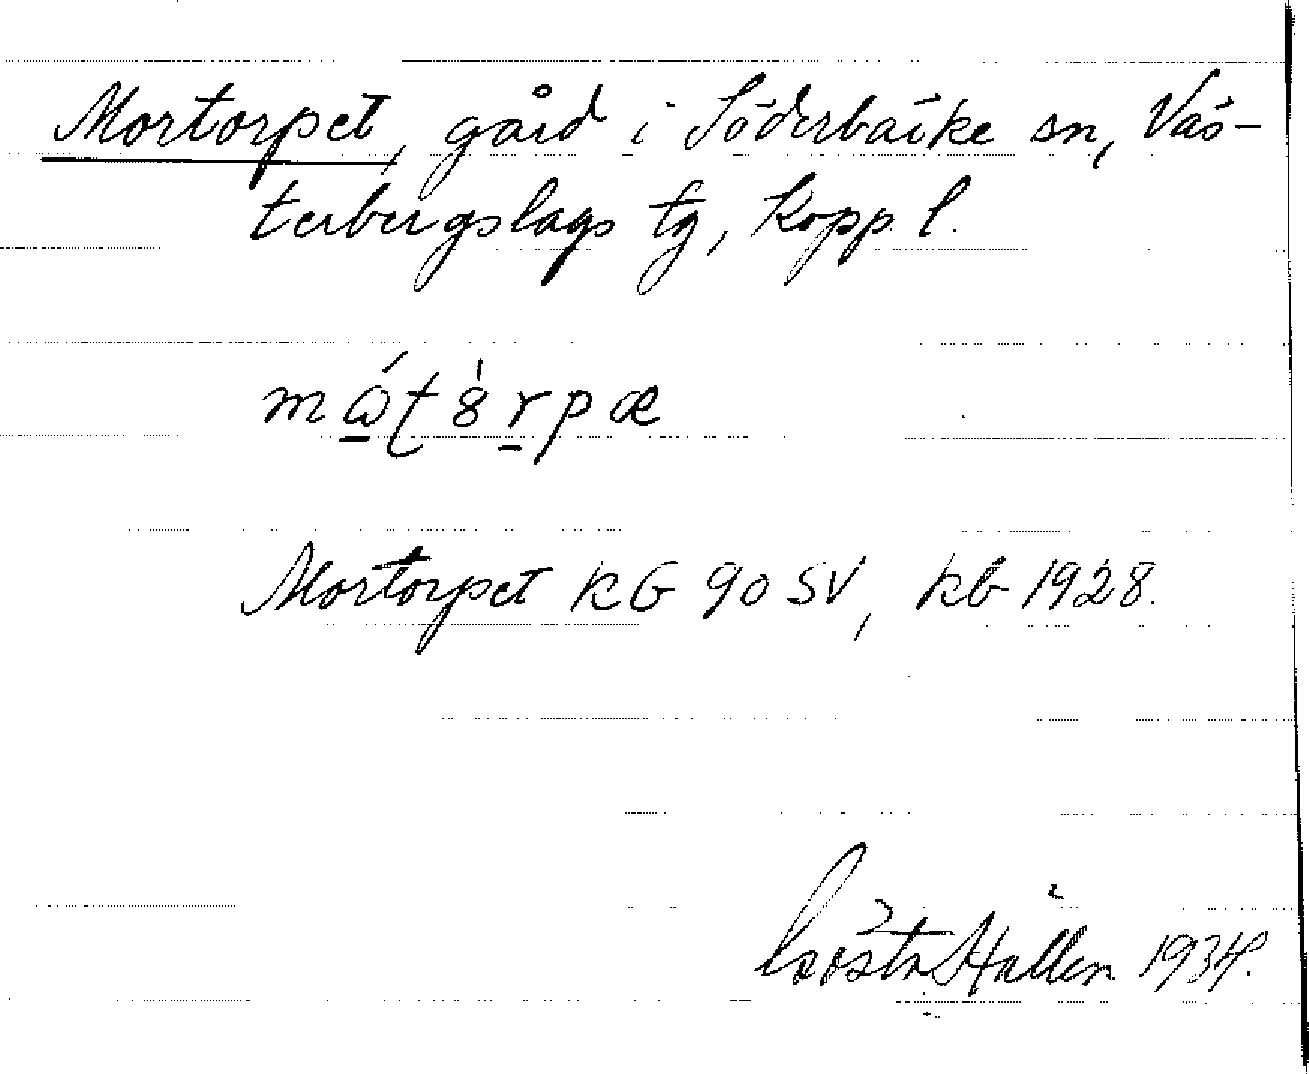 Mortorpet, gård i Söderbärke sn, Väs-
terbergslags tg, Kopp. l.
Mortorpet KG 90 SV, kb 1928.
Gösta Hallén 1934.